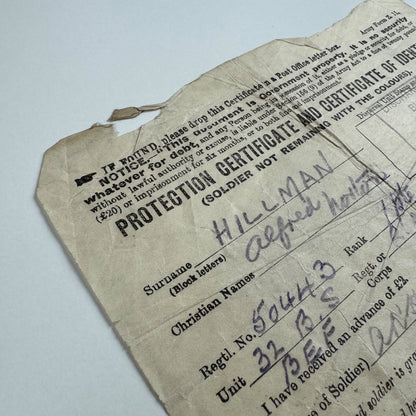 Army Form Z. 11.
☛ IF FOUND, please drop this Certificate in a Post Office letter box.
NOTICE.—This document is Government property. It is no security
whatever for debt, and any Person being in possession of it,
without lawful authority or excuse, is liable under Section 156 (9) of the Army Act to a fine of twenty pounds
(£20) or imprisonment for six months, or to both fine and imprisonment.
PROTECTION CERTIFICATE AND CERTIFICATE OF IDEN
(SOLDIER NOT REMAINING WITH THE COLOURS
Dispersal Unit Stamp
Surname HILLMAN
(Block letters)
Christian Names Alfred
Regtl. No. 50443 Rank
Unit 32 B. S Regt. or Corps
BEF
I have received an advance of £2
of Soldier)
soldier is